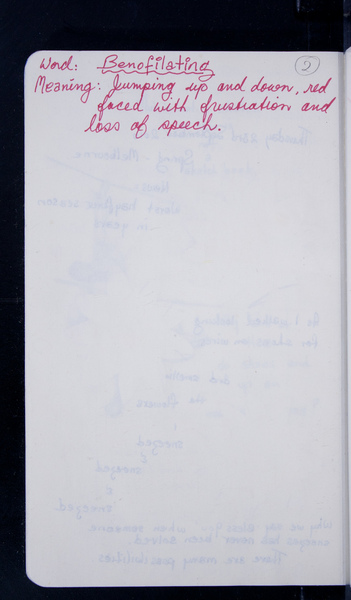 Word: Benofilating
2
Meaning: Jumping up and down, red
faced with frustration and
loss of speech.